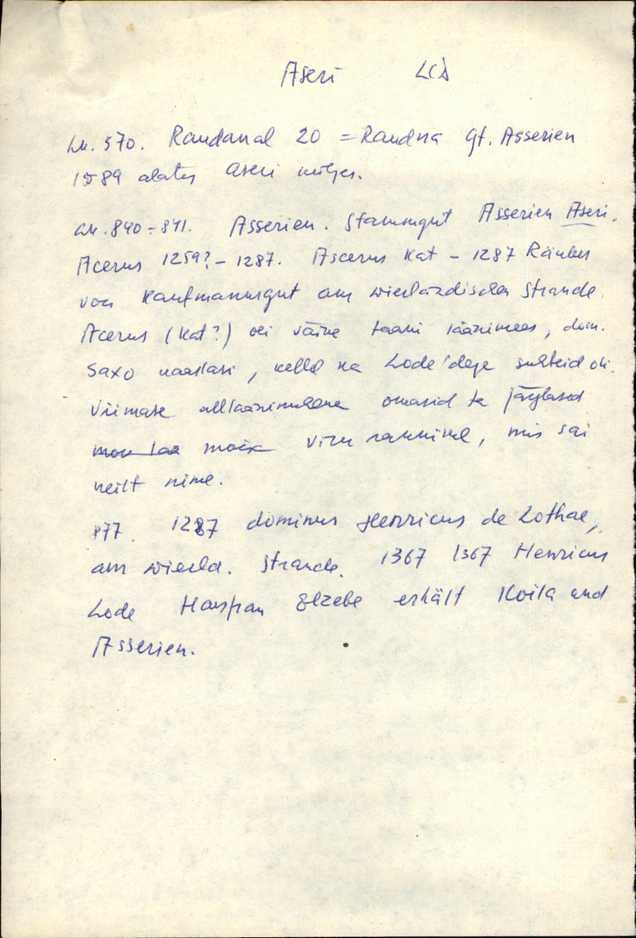 Aseri LCD
Lk. 570. Randanal 20 = Randna gt. Asserien
1589 alates Aseri mõis.
Lk. 840-841. Asserien. Stammgut Asserien Aseri.
Acerus 1259?-1287. Ascerus Kat - 1287 Räuber
von Kaufmannsgut am wierländischen Strande.
Acerus (Kat?) oli väike taani läänimees, dom.
Saxo naaslasi, kellel ka Lode'dega suhteid oli.
Viimase omasid ta järglased
mõisa Viru rannikul, mis sai
neilt nime.
877. 1287 dominus Henricus de Lothae,
am wierld. Strande. 1367 1367 Henricus
Lode Hausfrau Elzebe erhält Koila und
Asserien.